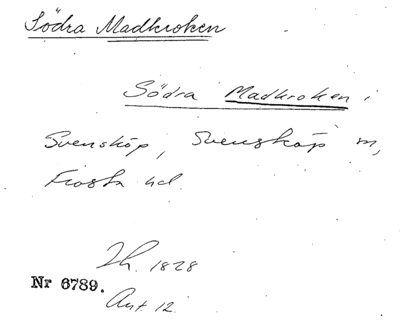 Södra Madkroken
Södra Madkroken i
Svensköp, Svensköp sn,
Frosta hd.
Lh. 1828
Nr 6789.
Ant. 12.